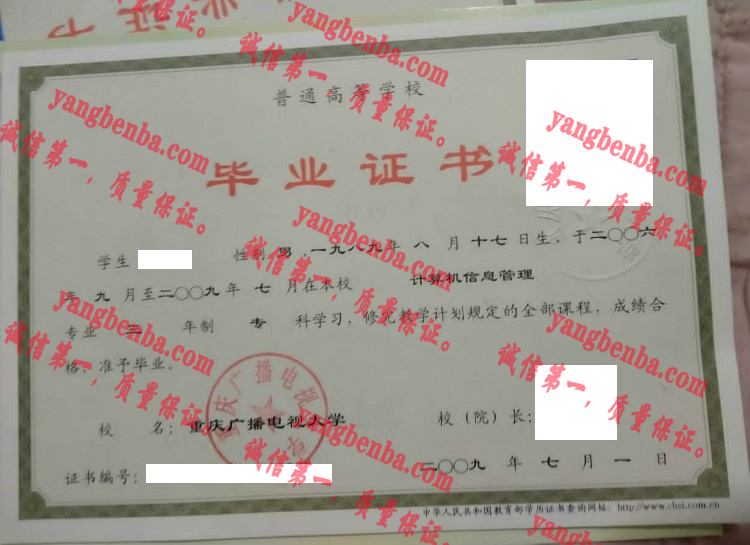 普通高等学校
毕业证书
学生 性别 男,一九八九年 八 月 十七 日生,于二〇〇六
年 九 月至二〇〇九年 七 月在本校 计算机信息管理
专业 三 年制 专 科学习,修完教学计划规定的全部课程,成绩合
格,准予毕业。
校 名:重庆广播电视大学
校(院)长:
二〇〇九 年 七 月 一 日
证书编号:
中华人民共和国教育部学历证书查询网址:http://www.chsi.com.cn
重庆广播电视大学
yangbenba.com
诚信第一,质量保证。
yangbenba.com
诚信第一,质量保证。
yangbenba.com
诚信第一,质量保证。
yangbenba.com
诚信第一,质量保证。
yangbenba.com
诚信第一,质量保证。
yangbenba.com
诚信第一,质量保证。
yangbenba.com
诚信第一,质量保证。
yangbenba.com
诚信第一,质量保证。
yangbenba.com
诚信第一,质量保证。